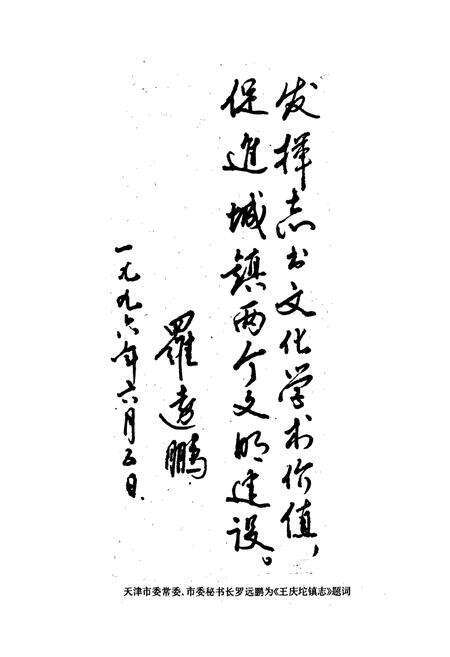 发挥志书文化学术价值，
促进城镇两个文明建设。
羅遠鵬
一九九六年六月五日.
天津市委常委、市委秘书长罗远鹏为《王庆坨镇志》题词